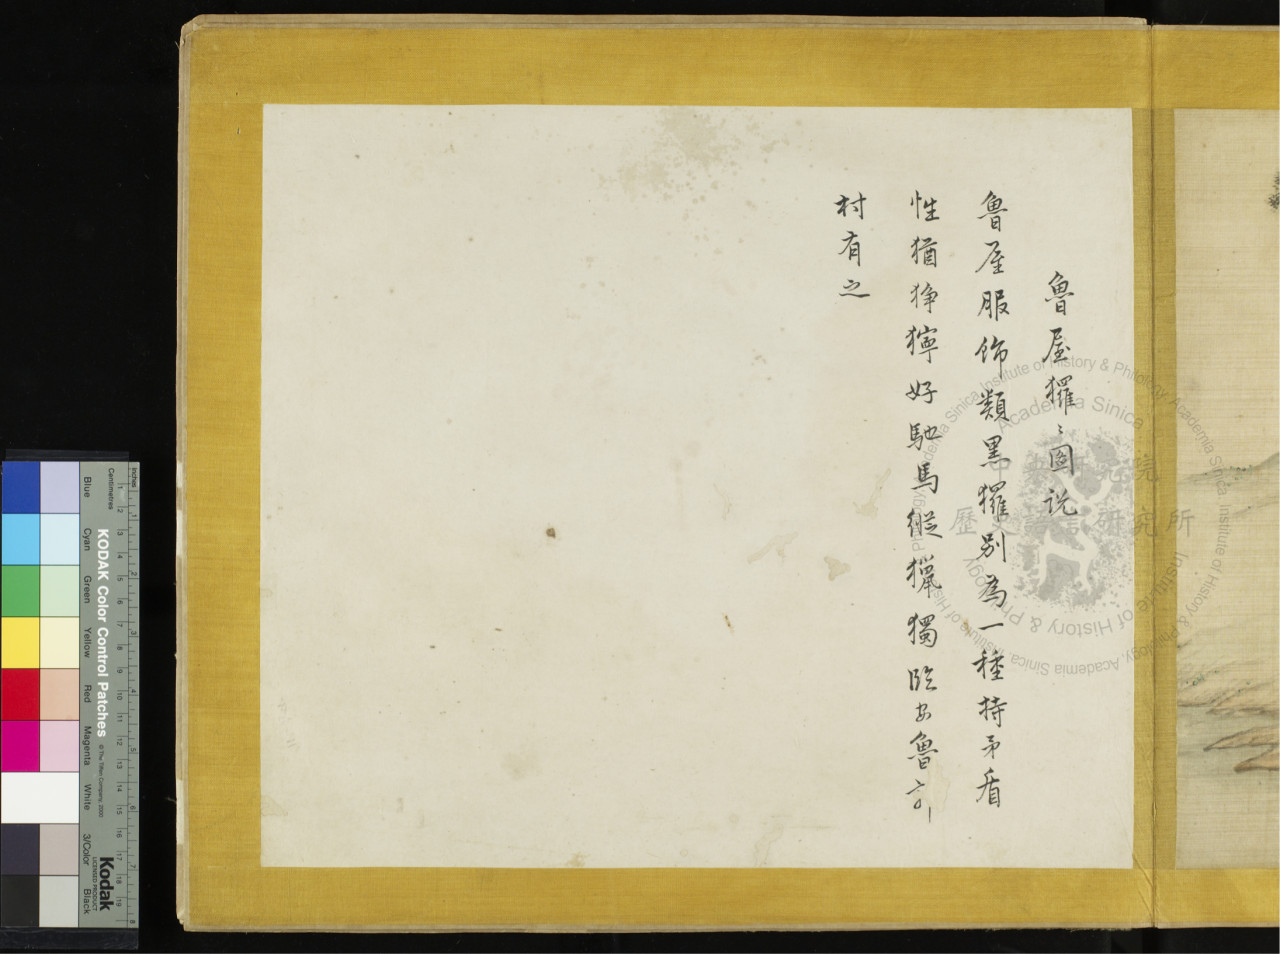 魯屋玀〻圖說
魯屋服飾類黑玀別為一種持矛盾
性猶猙獰好馳馬縱獵獨臨安魯
村有之
中央研究院
歷史語言研究所
Academia Sinica
Institute of History & Philology
Institute of History & Philology, Academia Sinica
KODAK Color Control Patches
© The Tiffen Company, 2000
Kodak
LICENSED PRODUCT
Blue
Cyan
Green
Yellow
Red
Magenta
White
3/Color
Black
Inches
Centimetres
1 2 3 4 5 6 7 8
1 2 3 4 5 6 7 8 9 10 11 12 13 14 15 16 17 18 19